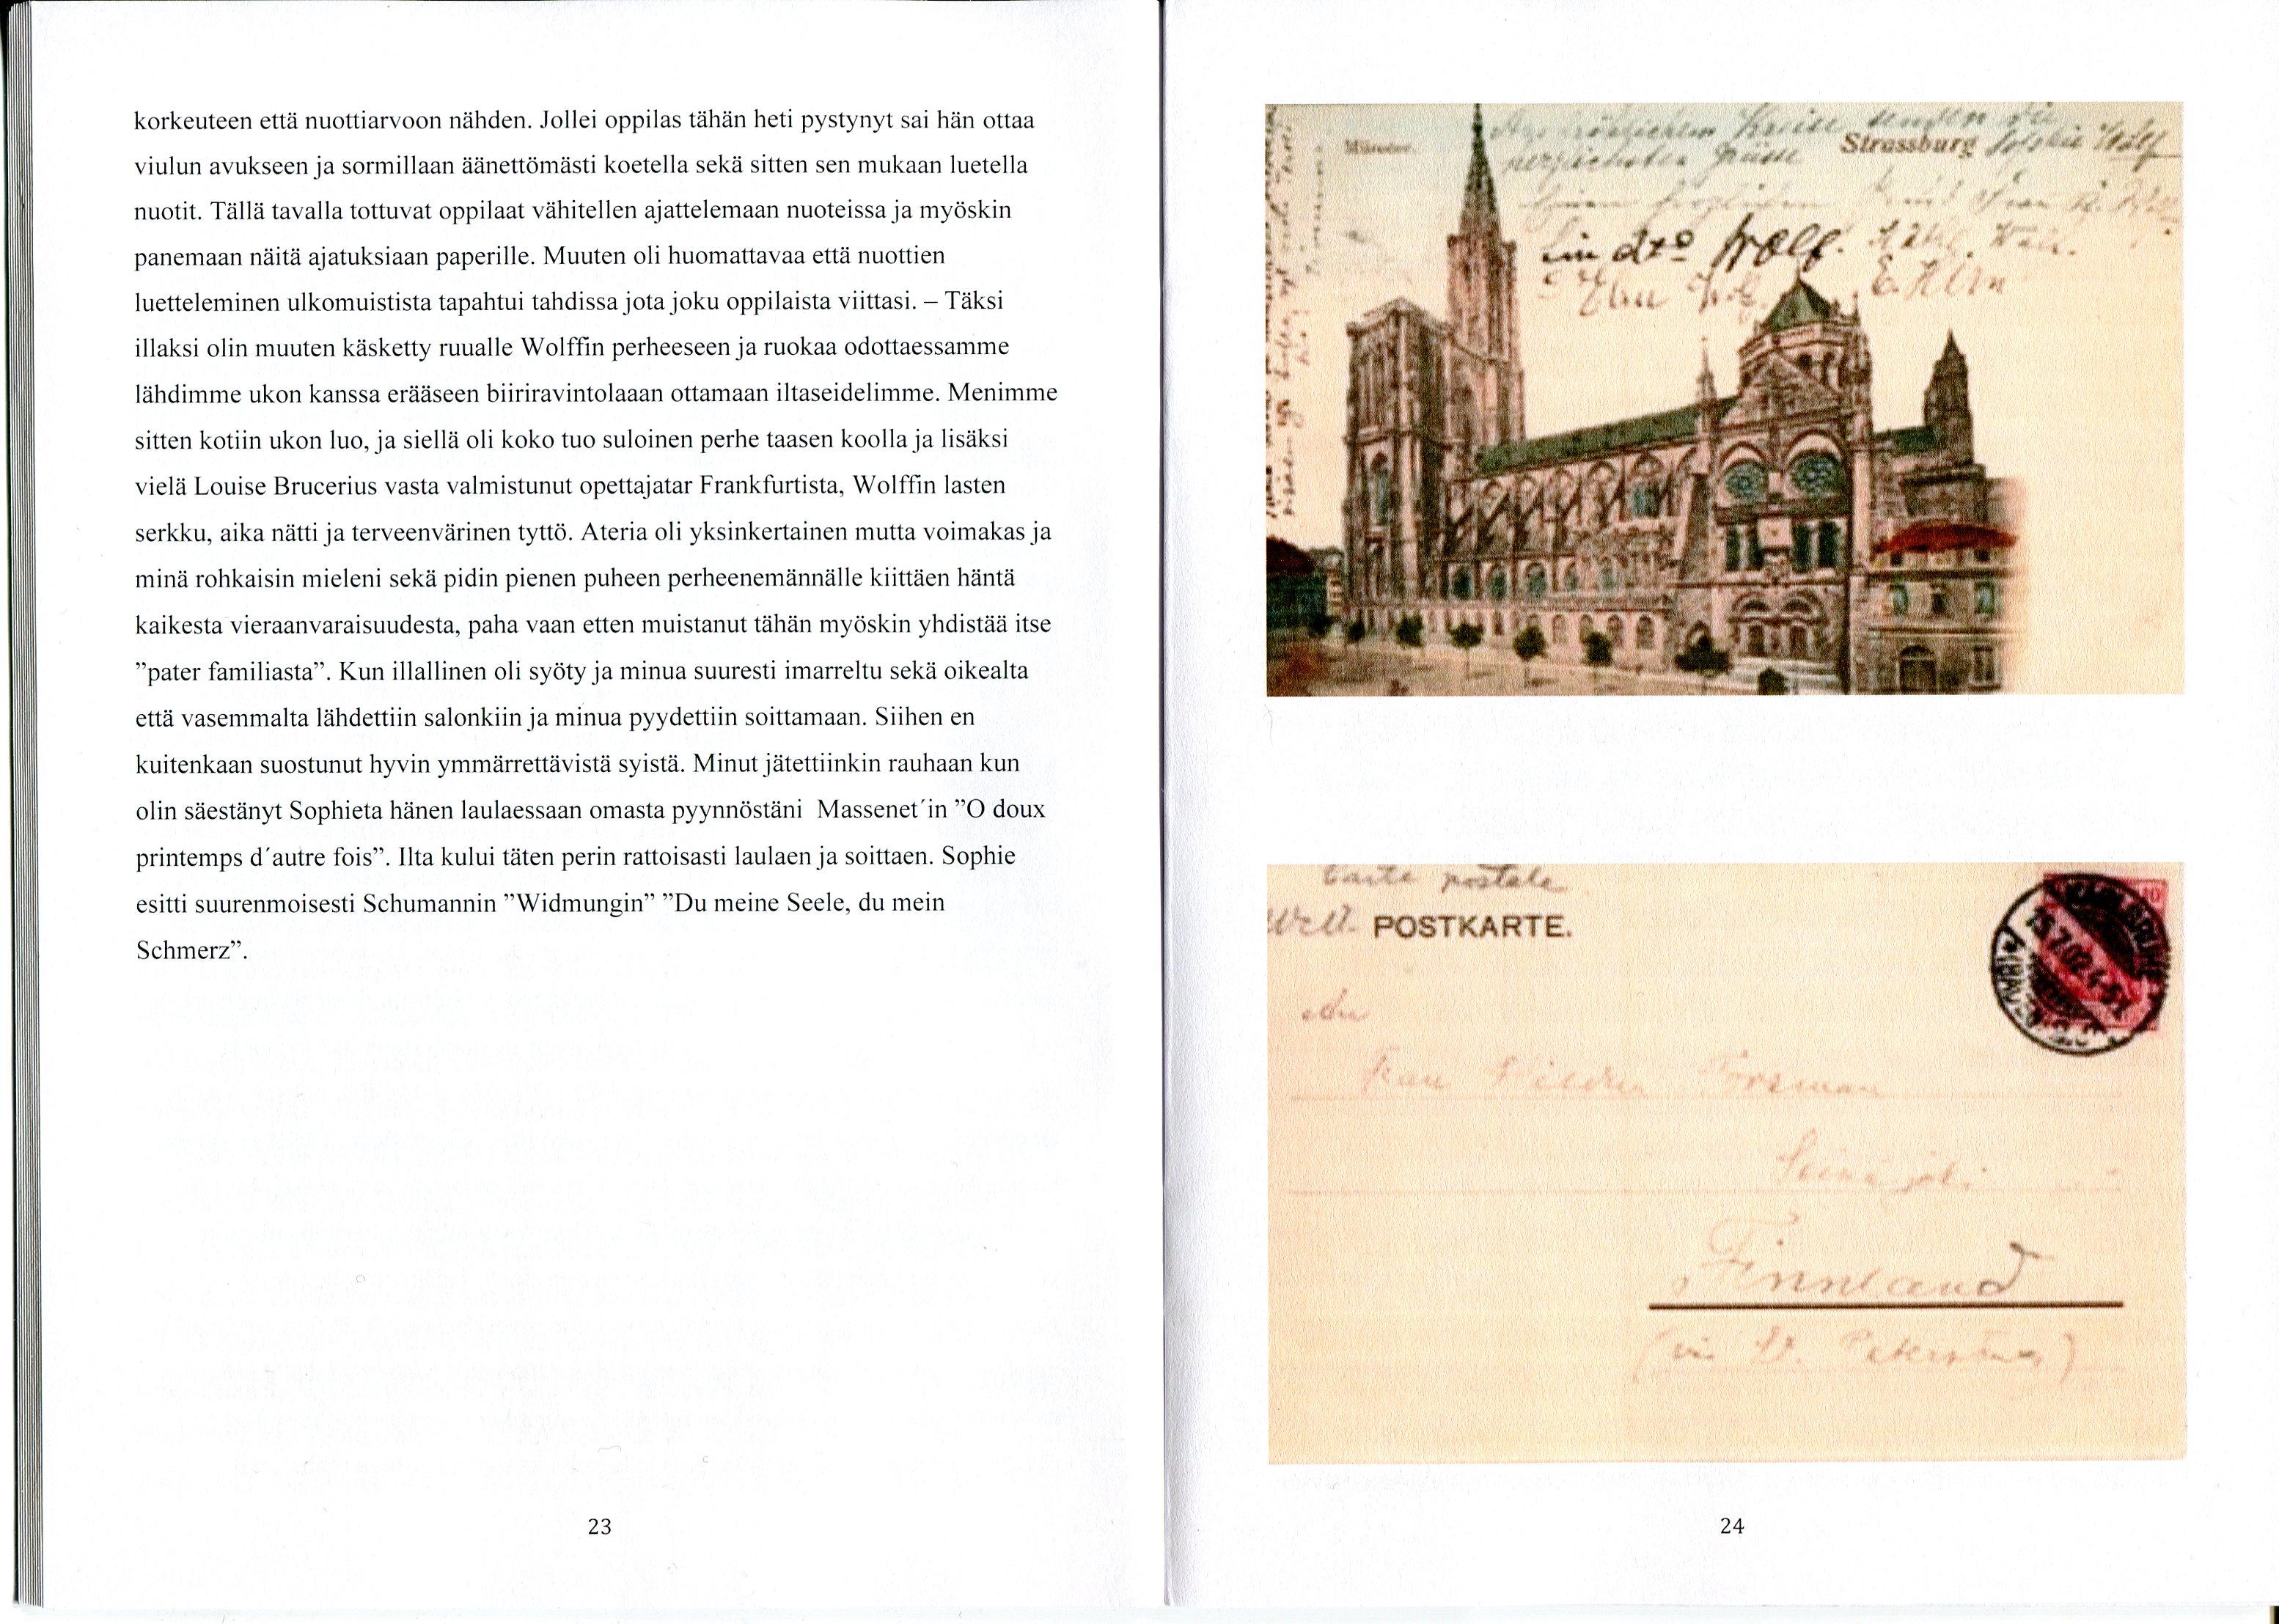 korkeuteen että nuottiarvoon nähden. Jollei oppilas tähän heti pystynyt sai hän ottaa
viulun avukseen ja sormillaan äänettömästi koetella sekä sitten sen mukaan luetella
nuotit. Tällä tavalla tottuvat oppilaat vähitellen ajattelemaan nuoteissa ja myöskin
panemaan näitä ajatuksiaan paperille. Muuten oli huomattavaa että nuottien
luetteleminen ulkomuistista tapahtui tahdissa jota joku oppilaista viittasi. – Täksi
illaksi olin muuten käsketty ruualle Wolffin perheeseen ja ruokaa odottaessamme
lähdimme ukon kanssa erääseen biiriravintolaaan ottamaan iltaseidelimme. Menimme
sitten kotiin ukon luo, ja siellä oli koko tuo suloinen perhe taasen koolla ja lisäksi
vielä Louise Brucerius vasta valmistunut opettajatar Frankfurtista, Wolffin lasten
serkku, aika nätti ja terveenvärinen tyttö. Ateria oli yksinkertainen mutta voimakas ja
minä rohkaisin mieleni sekä pidin pienen puheen perheenemännälle kiittäen häntä
kaikesta vieraanvaraisuudesta, paha vaan etten muistanut tähän myöskin yhdistää itse
”pater familiasta”. Kun illallinen oli syöty ja minua suuresti imarreltu sekä oikealta
että vasemmalta lähdettiin salonkiin ja minua pyydettiin soittamaan. Siihen en
kuitenkaan suostunut hyvin ymmärrettävistä syistä. Minut jätettiinkin rauhaan kun
olin säestänyt Sophieta hänen laulaessaan omasta pyynnöstäni  Massenet´in ”O doux
printemps d´autre fois”. Ilta kului täten perin rattoisasti laulaen ja soittaen. Sophie
esitti suurenmoisesti Schumannin ”Widmungin” ”Du meine Seele, du mein
Schmerz”.
23
Münster.
Strassburg
herzlichsten Grüsse
E. Hirn
Carte postale
POSTKARTE.
25.7.02.
An
Frau Forsman
Seinäjoki
Finnland
24